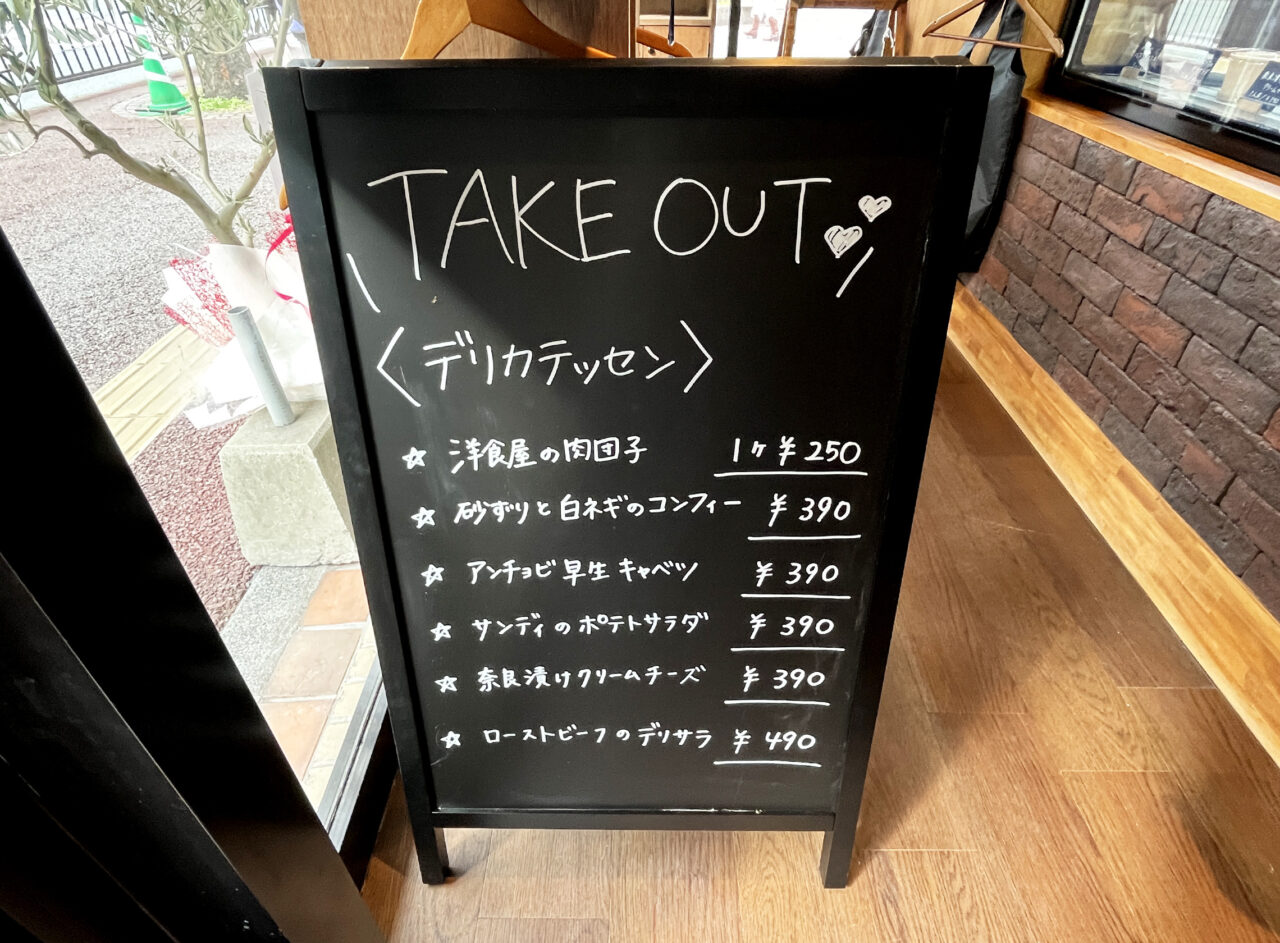 TAKE OUT
〈デリカテッセン〉
☆ 洋食屋の肉団子 1ヶ ¥250
☆ 砂ずりと白ネギのコンフィー ¥390
☆ アンチョビ早生キャベツ ¥390
☆ サンディのポテトサラダ ¥390
☆ 奈良漬けクリームチーズ ¥390
☆ ローストビーフのデリサラ ¥490